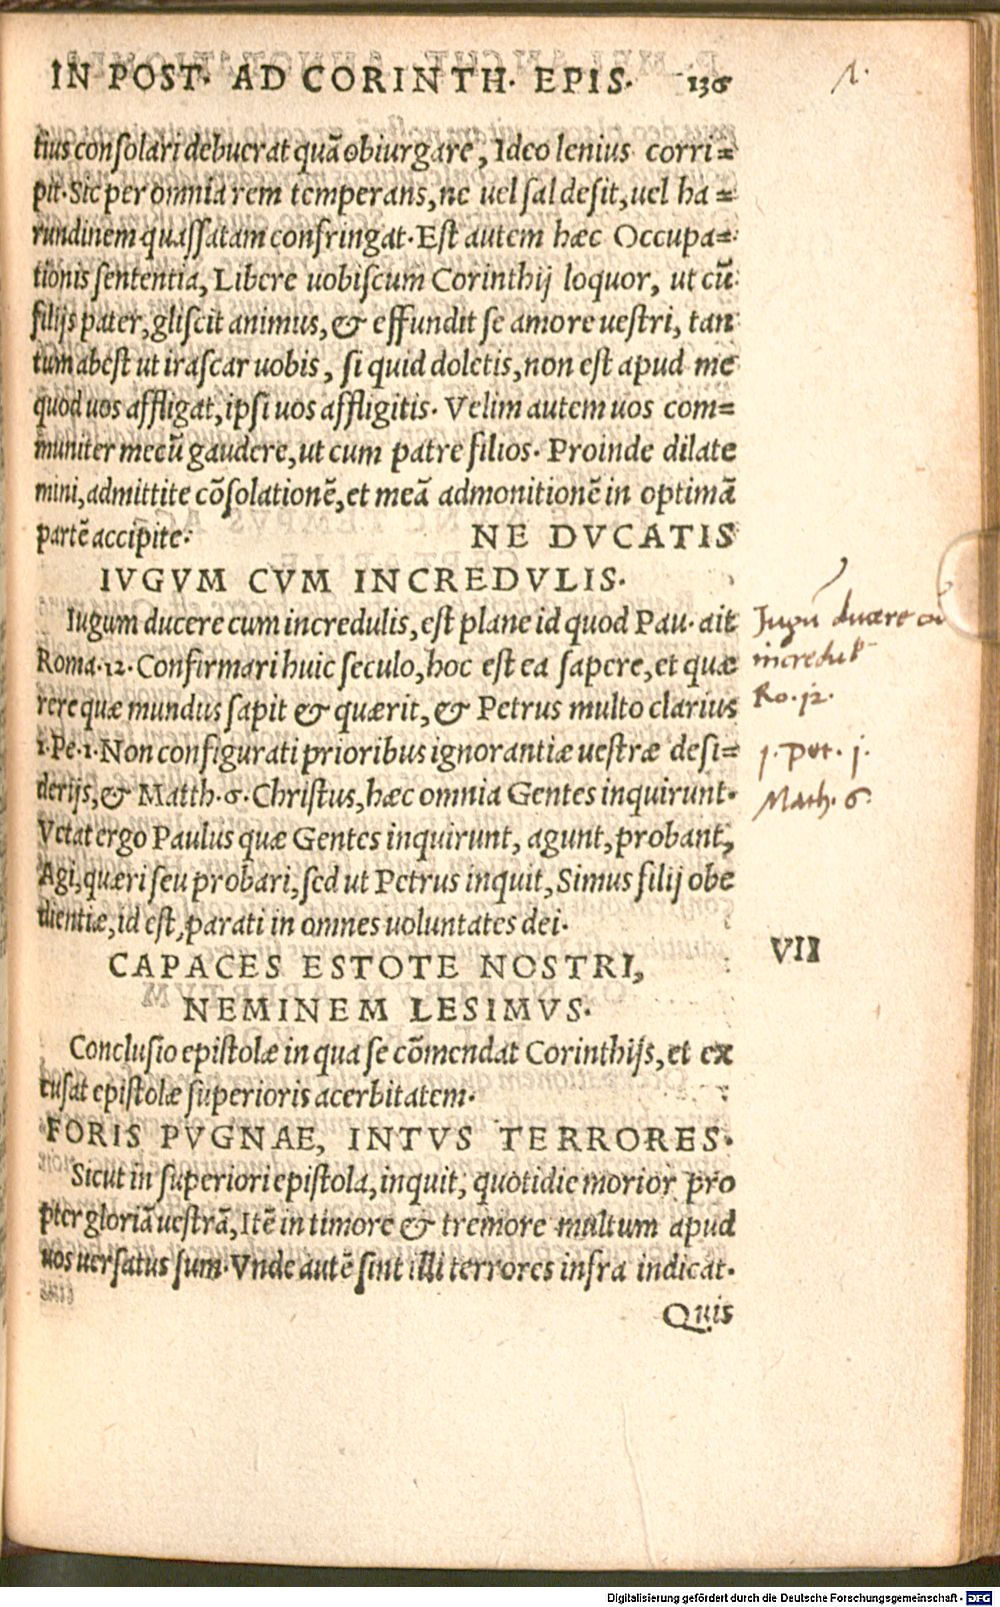 IN POST. AD CORINTH. EPIS. 136
1.
tius consolari debuerat quā obiurgare, Ideo lenius corri=
pit. Sic per omnia rem temperans, ne uel sal desit, uel ha=
rundinem quassatam confringat. Est autem hæc Occupa=
tionis sententia, Libere uobiscum Corinthij loquor, ut cū
filijs pater, gliscit animus, & effundit se amore uestri, tan
tum abest ut irascar uobis, si quid doletis, non est apud me
quod uos affligat, ipsi uos affligitis. Velim autem uos com=
muniter mecū gaudere, ut cum patre filios. Proinde dilate
mini, admittite cōsolationē, et meā admonitionē in optimā
partē accipite. NE DVCATIS
IVGVM CVM INCREDVLIS.
Iugum ducere cum incredulis, est plane id quod Pau. ait
Roma. 12. Confirmari huic seculo, hoc est ea sapere, et quæ
rere quæ mundus sapit & quærit, & Petrus multo clarius
1. Pe. 1. Non configurati prioribus ignorantiæ uestræ desi=
derijs, & Matth. 6. Christus, hæc omnia Gentes inquirunt.
Vetat ergo Paulus quæ Gentes inquirunt, agunt, probant,
Agi, quæri seu probari, sed ut Petrus inquit, Simus filij obe
dientiæ, id est, parati in omnes uoluntates dei.
Jugū ducere cū
incredul
Ro. 12.
1. Pet. 1.
Math. 6.
VII
CAPACES ESTOTE NOSTRI,
NEMINEM LESIMVS.
Conclusio epistolæ in qua se cōmendat Corinthijs, et ex
cusat epistolæ superioris acerbitatem.
FORIS PVGNAE, INTVS TERRORES.
Sicut in superiori epistola, inquit, quotidie morior pro
pter gloriā uestrā, Itē in timore & tremore multum apud
uos uersatus sum. Vnde autē sint illi terrores infra indicat.
Quis
Digitalisierung gefördert durch die Deutsche Forschungsgemeinschaft - DFG